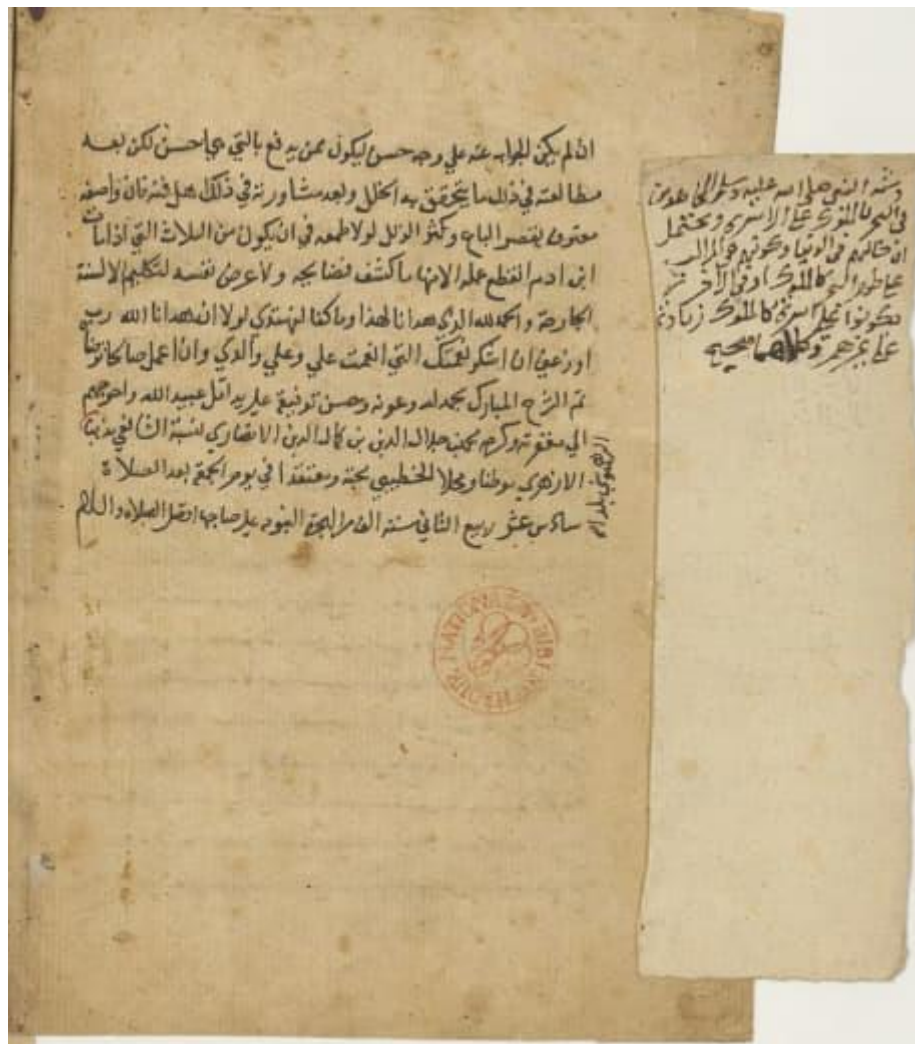 ان لم يكن الجواب عنه علي وجه حسن ليكون ممن يدفع بالتي هي احسن لكن بعد
مطالعته في ذلك ما يتحقق به الخلل وبعد مشاورته في ذلك اهل فنه فان واضعه
معترف بقصر الباع وكثرة الزلل لولا طمعه في ان يكون من الثلاث التي اذا مات
ابن ادم انقطع عمله الا منها ما كشف فضايحه ولا عرض نفسه لتكليم الالسنة
الجارحة والحمد لله الذي هدانا لهذا وما كنا لنهتدي لولا ان هدانا الله رب
اوزعني ان اشكر نعمتك التي انعمت علي وعلي والدي وان اعمل صالحا ترضاه
تم الشرح المبارك بحمد الله وعونه وحسن توفيقه علي يد اقل عبيد الله واحوجهم
الي مغفرته وكرمه محمد بن جلال الدين بن كمال الدين الانصاري نسبة الشافعي مذهبا
الازهري موطنا ومحلا الخطيبي محبة ومعتقدا في يوم الجمعة بعد الصلاة
سادس عشر ربيع الثاني سنة الف من الهجرة النبويه علي صاحبها افضل الصلاة والسلام
بلدا
وشبه النبي صلى الله عليه وسلم
في البحر بالملوك على الاسرة ويحتمل
ان حالهم في الدنيا وكونهم
على ظهر البحر كالملوك او في الاخرة
يكونوا على اسرة كالملوك زيادة
على غيرهم وكلاهما صحيح
BIBLIOTHEQUE NATIONALE